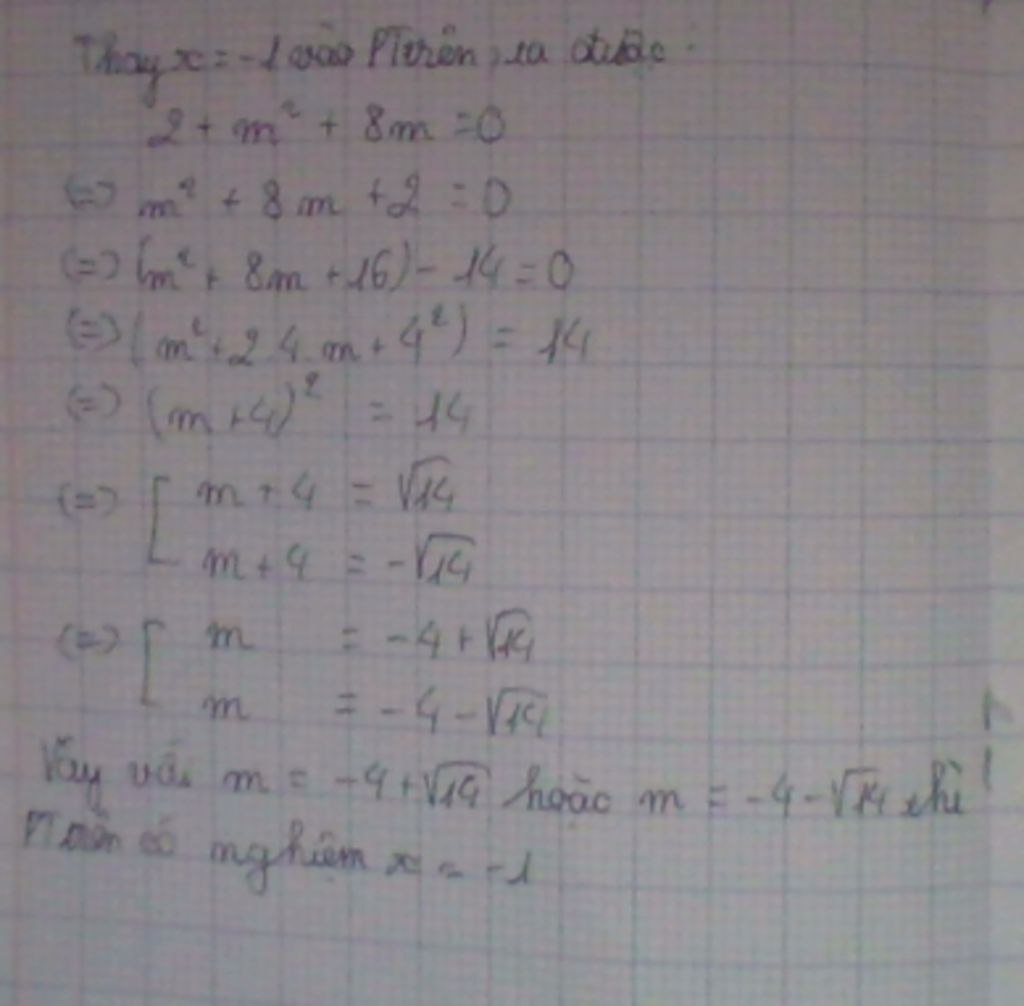 Thay x = -1 vào PT trên, ta được:
2 + m² + 8m = 0
(=) m² + 8m + 2 = 0
(=) (m² + 8m + 16) - 14 = 0
(=) (m² + 2.4.m + 4²) = 14
(=) (m + 4)² = 14
(=) [ m + 4 = √14
m + 4 = -√14
(=) [ m = -4 + √14
m = -4 - √14
Vậy với m = -4 + √14 hoặc m = -4 - √14 thì
PT trên có nghiệm x = -1